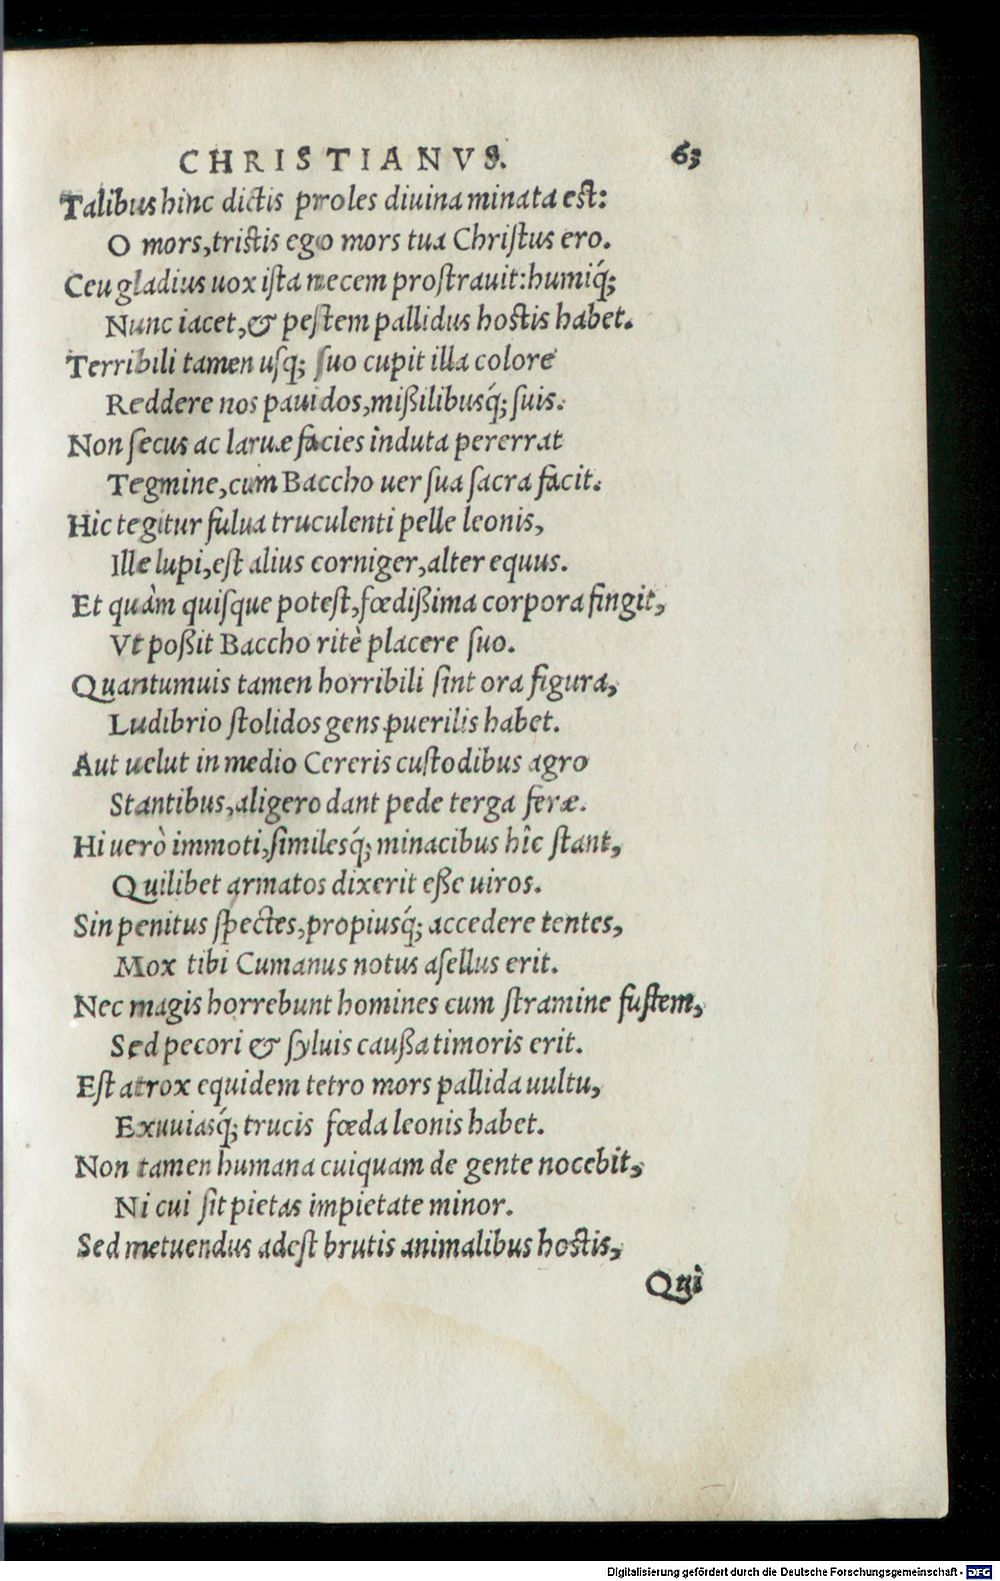 CHRISTIANVS. 63
Talibus hinc dictis proles diuina minata est:
O mors, tristis ego mors tua Chriſtus ero.
Ceu gladius uox iſta necem proſtrauit: humiq́;
Nunc iacet, & peſtem pallidus hostis habet.
Terribili tamen uſq; ſuo cupit illa colore
Reddere nos pauidos, mißilibusq́; ſuis.
Non ſecus ac laruæ facies induta pererrat
Tegmine, cum Baccho uer ſua ſacra facit.
Hic tegitur fulua truculenti pelle leonis,
Ille lupi, eſt alius corniger, alter equus.
Et quàm quiſque poteſt, fœdißima corpora fingit,
Vt poßit Baccho ritè placere ſuo.
Quantumuis tamen horribili ſint ora figura,
Ludibrio ſtolidos gens puerilis habet.
Aut uelut in medio Cereris cuſtodibus agro
Stantibus, aligero dant pede terga feræ.
Hi uerò immoti, ſimilesq́; minacibus hîc ſtant,
Quilibet armatos dixerit eße uiros.
Sin penitus ſpectes, propiusq́; accedere tentes,
Mox tibi Cumanus notus aſellus erit.
Nec magis horrebunt homines cum ſtramine fuſtem,
Sed pecori & ſyluis caußa timoris erit.
Eſt atrox equidem tetro mors pallida uultu,
Exuuiasq́; trucis fœda leonis habet.
Non tamen humana cuiquam de gente nocebit,
Ni cui ſit pietas impietate minor.
Sed metuendus adeſt brutis animalibus hostis,
Qui
Digitalisierung gefördert durch die Deutsche Forschungsgemeinschaft - DFG